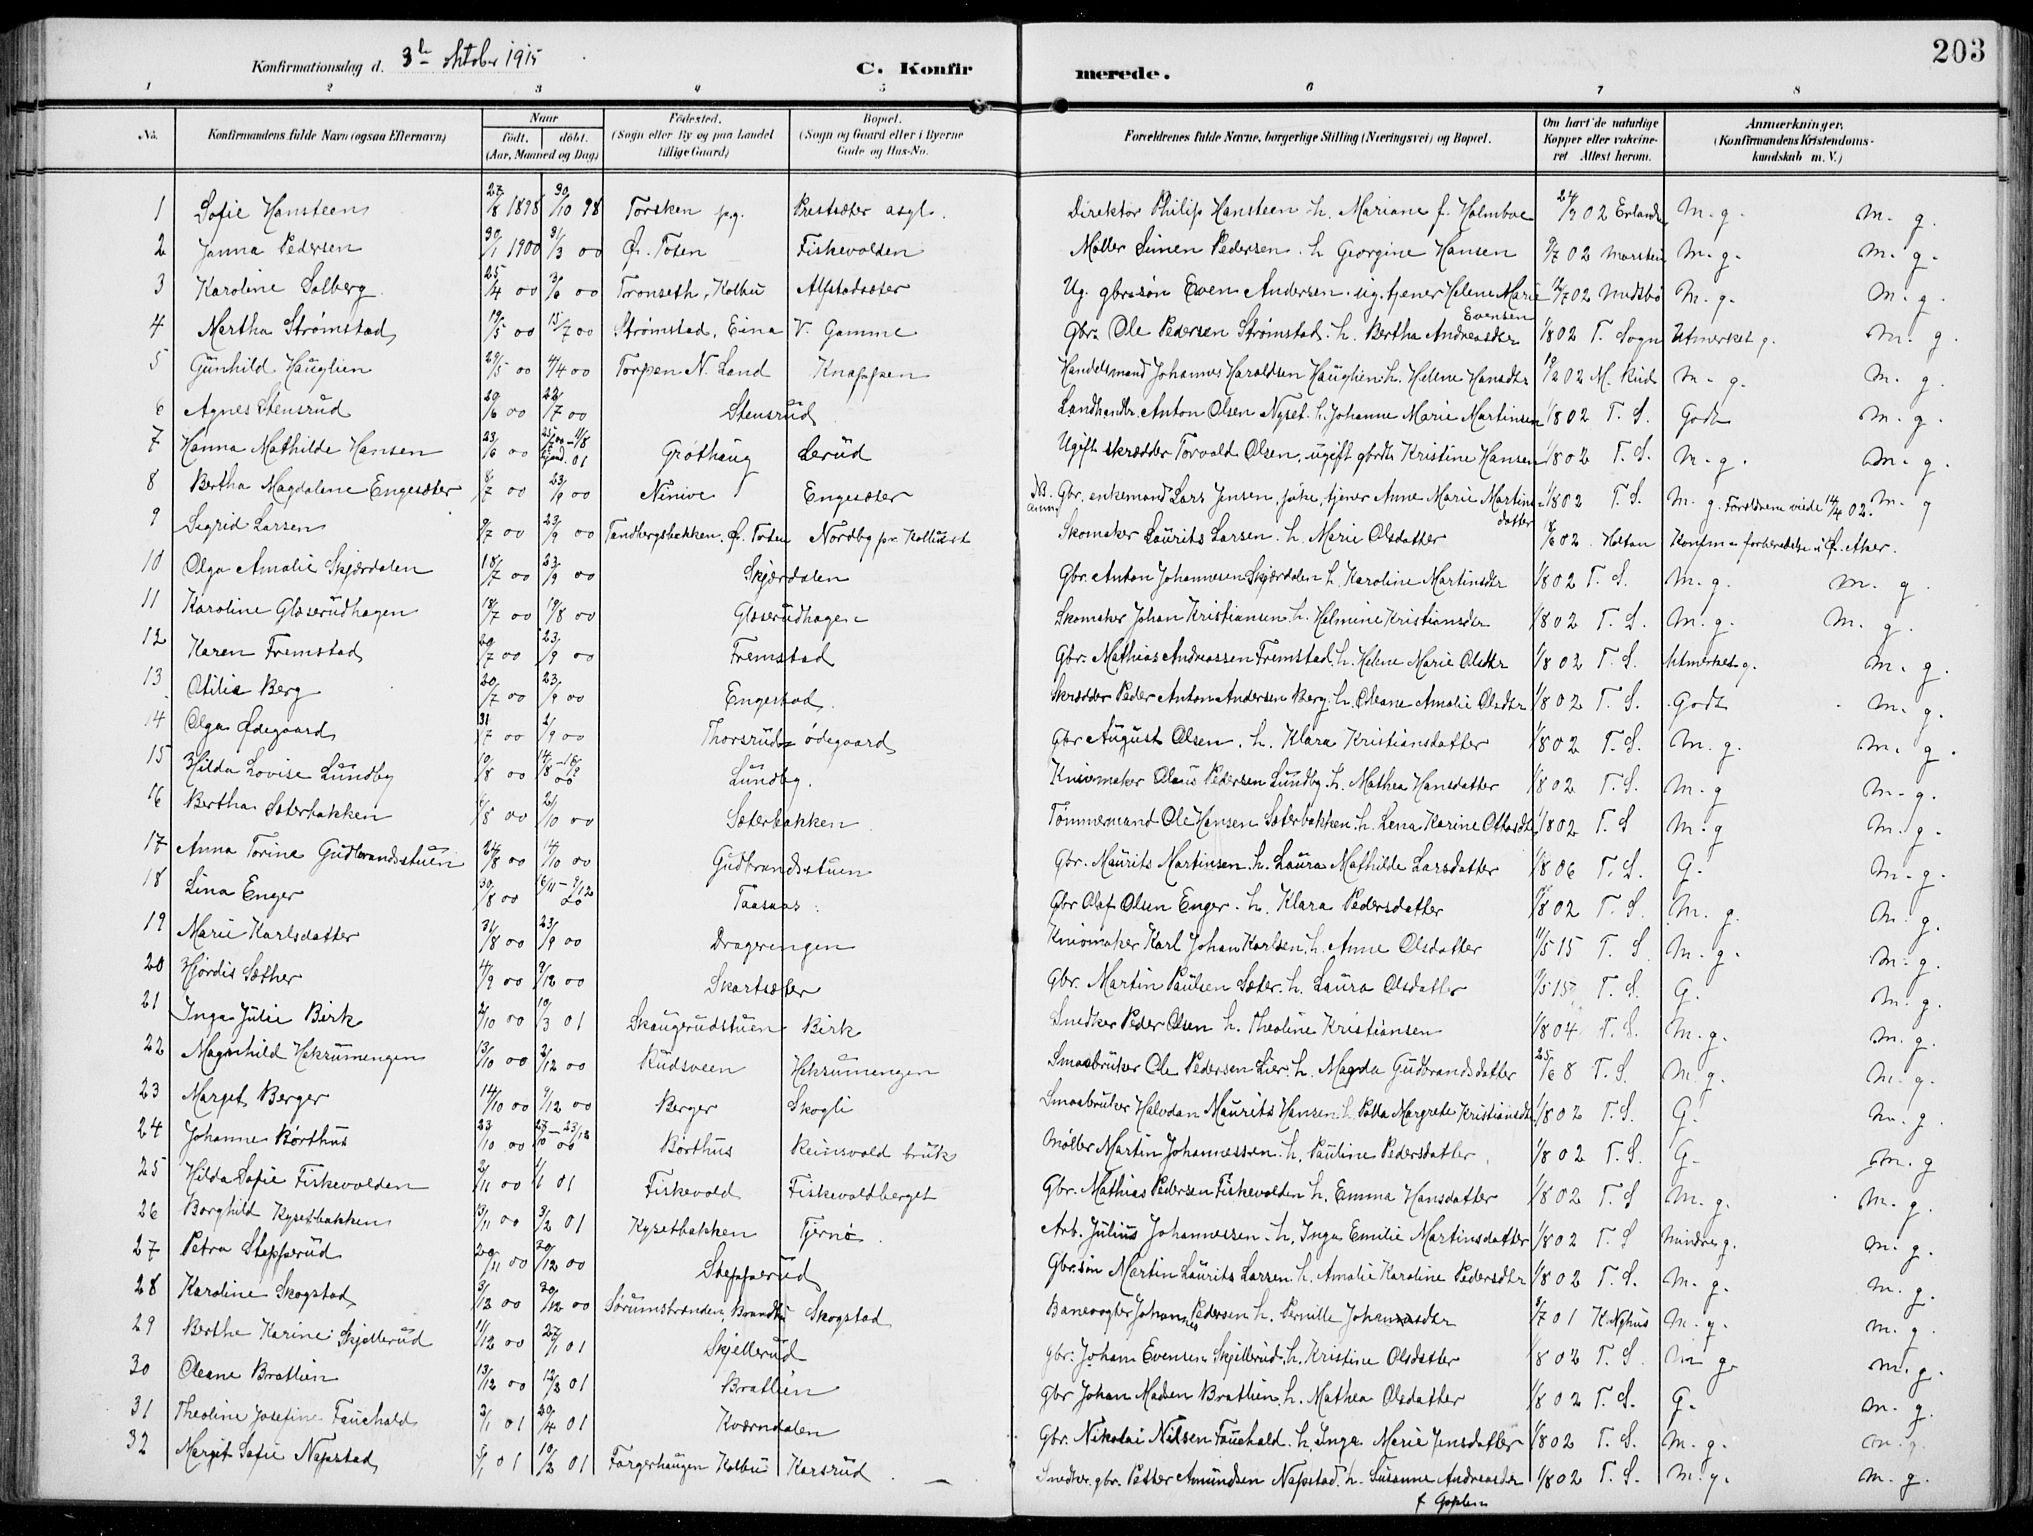 203
Konfirmationsdag d. 3de oktober 1915 C. Konfirmerede.
1 2 3 4 5 6 7 8
No. Konfirmandens fulde Navn (ogsaa Efternavn) Naar født. døbt. (Aar, Maaned og Dag) Fødested. (Sogn eller By og paa Landet tillige Gaard) Bopæl. (Sogn og Gaard eller i Byerne Gade og Hus-No. Forældrenes fulde Navne, borgerlige Stilling (Næringsvei) og Bopæl. Om havt de naturlige Kopper eller vakcineret Attest herom. Anmærkninger, (Konfirmandens Kristendomskundskab m. V.)
1 Sofie Hansteen 27/8 1898 30/10 98 Torsken pg. Prestsæter asyl. Direktør Philip Hansteen h. Mariane f. Holmboe 24/9 02 M. g. M. g.
2 Janna Pedersen 30/1 1900 31/3 00 Ø. Toten Fiskevolden Møller Simen Pedersen. h Georgine Hansen 9/7 02 M. g. M. g.
3 Karoline Solberg 25/4 00 3/6 00 Tronseth, Kolbu Alfstadsæter Ug. gbr.søn Even Andersen. ug. tjener Helene Marie Evensen 12/7 02 M. g. M. g.
4 Martha Strømstad 19/5 00 15/7 00 Strømstad, Eina V. Gamme Gbr. Ole Pedersen Strømstad. h. Bertha Andreasdtr 1/8 02 T. Sogn Utmerket g. M. g.
5 Gunhild Hauglien 29/5 00 4/4 00 Torpen N. Land Knappen Handelsmand Johannes Haraldsen Hauglien. h. Helene Hansdtr 02 M. Rud M. g. M. g.
6 Agnes Stensrud 20/6 00 22/7 00 Stensrud Landhandler Anton Olsen Nyset. h. Johanne Marie Martinsen 1/8 02 T. S. Godt M. g.
7 Hanna Mathilde Hansen 23/6 00 01 Grøthaug Lerud Ugift skrædder Torvald Olsen, ugift gbrdtr Kristine Hansen 1/8 02 T. S. M. g. M. g.
8 Bertha Magdalene Engesæter 8/7 00 23/9 00 Ninive Engesæter Gbr. enkemand Lars Jensen, pike, tjener Anne Marie Martinsdatter 1/8 02 T. S. M. g. Forældrene viede 14/4 02. M. g
9 Sigrid Larsen 9/7 00 23/9 00 Tandbergsbakken. Ø. Toten Nordby pr. Skomaker Laurits Larsen. h. Marie Olsdatter 18/6 02 Holtan Konfm. forberedelse i Ø. Aker.
10 Olga Amalie Skjærdalen 18/7 00 23/9 00 Skjærdalen Gbr. Anton Johannesen Skjærdalen h. Karoline Martinsdtr 1/8 02 T. S. M. g. M. g.
11 Karoline Glæserudhagen 18/7 00 19/8 00 Glæserudhagen Skomaker Johan Kristiansen. h. Helmine Kristiansdtr 1/8 02 T. S. M. g. M. g.
12 Karen Fremstad 20/7 00 23/9 00 Fremstad Gbr. Mathias Andreassen Fremstad. h. Helene Marie Olsdtr 1/8 02 T. S. Utmerket g. M. g.
13 Otilie Berg 20/7 00 23/9 00 Engestad Skrædder Peder Anton Andersen Berg. h. Oleane Amalie Olsdtr 1/8 02 T. S. Godt M. g.
14 Olga Ødegaard 31/7 00 2/9 00 Thorsrud-ødegaard Gbr August Olsen. h. Klara Kristiansdatter 1/8 02 T. S. M. g. M. g.
15 Hilda Lovise Lundby 10/8 00 Lundby. Knivmaker Olaus Pedersen Lundby. h. Mathea Hansdatter 1/8 02 T. S. M. g M. g.
16 Bertha Sæterbakken 00 2/10 00 Sæterbakken Tømmermand Ole Hansen Sæterbakken. h. Lena Karine Ottosdtr 1/8 02 T. S M. g M. g.
17 Anna Torine Gudbrandsstuen 24/8 00 14/10 00 Gudbrandsstuen Gbr. Maurits Martinsen. h. Laura Mathilde Larsdatter 1/8 06 T. S. G. M. g.
18 Lina Enger 30/8 00 Taasaas Gbr Olaf Olsen Enger. h. Klara Pedersdatter 1/8 02 T. S. M. g. M. g.
19 Marie Karlsdatter 31/8 00 23/9 00 Drageringen Knivmaker Karl Johan Karlsen. h. Anne Olsdatter 11/5 15 T. S M. g. M. g.
20 Hjørdis Sæther 4/9 00 9/12 00 Skartsæter Gbr. Martin Paulsen Sæter. h. Laura Olsdatter 15 T. S. G. M. g.
21 Inga Julie Birk 2/10 00 10/3 01 Skaugerudstuen Birk Snedker Peder Olsen h. Theoline Kristiansen 1/8 04 T. S. M. g. M. g.
22 Magnhild Hekrumengen 13/10 00 2/12 00 Rudsveen Hekrumengen Smaabruker Ole Pedersen Lier. h. Magda Gudbrandsdatter 25/6 8 T. S. M. g. M. g.
23 Margit Berger 14/10 00 9/12 00 Berger Skogli Smaabruker Halvdan Maurits Hansen. h. Petra Margrete Kristiansdtr 1/8 02 T. S. G. M. g.
24 Johanne Børthus 23/10 00 Børthus Reinsvold bruk Møller Martin Johannessen. h. Pauline Pedersdatter 1/8 02 T. S. G. M. g
25 Hilda Sofie Fiskevolden 2/11 00 1/1 01 Fiskevold Fiskevoldberget Gbr. Mathias Pedersen Fiskevolden h. Emma Hansdatter 1/8 02 T. S M. g. M. g.
26 Borghild Kysetbakken 13/11 00 3/2 01 Kysetbakken Tjernø Arb. Julius Johannessen. h. Inga Emilie Martinsdatter 1/8 02 T. S Mindre g. M. g.
27 Petra Stepperud 20/11 00 30/12 00 Stepperud Gbr.søn Martin Laurits Larsen. h. Amalie Karoline Pedersdtr 1/8 02 T. S. M. g. M. g.
28 Karoline Skogstad 3/12 00 30/12 00 Sørumsbranden, Brandbu Skogstad Banevogter Johannes Pedersen h. Pernille Johannesdtr 5/7 01 M. g. M. g.
29 Berthe Karine Skjellerud 11/12 00 27/1 01 Skjellerud gbr. Johan Evensen Skjellerud. h. Kristine Olsdatter 1/8 02 T. S. M g. M. g.
30 Oleane Bratlien 13/12 00 12/2 01 Bratlien Gbr Johan Madsen Bratlien. h. Mathea Olsdatter 1/8 02 T. S. G. M. g.
31 Theoline Josefine Fauchald 2/1 01 20/4 01 Kværndalen Gbr. Nikolai Nilsen Fauchald. h. Inga Marie Jensdatter 1/8 02 T. S. M. g. M. g.
32 Margit Sofie Napstad 5/1 01 10/2 01 Fargerhaugen Kolbu Karsrud Snedker. gbr. Petter Amundsen Napstad. h. Susanne Andreasdtr 1/8 02 T. S. M. g. M. g.